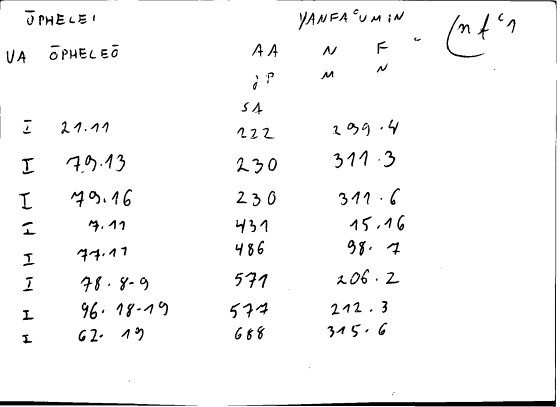 ŌPHELEI YANFA CUMIN
UA ŌPHELEŌ AA N F
jP M N
SA
I 21.11 222 299.4
I 79.13 230 311.3
I 79.16 230 311.6
I 7.11 431 15.16
I 77.17 486 98.7
I 78.8-9 571 206.2
I 96.18-19 577 212.3
I 62.19 688 315.6